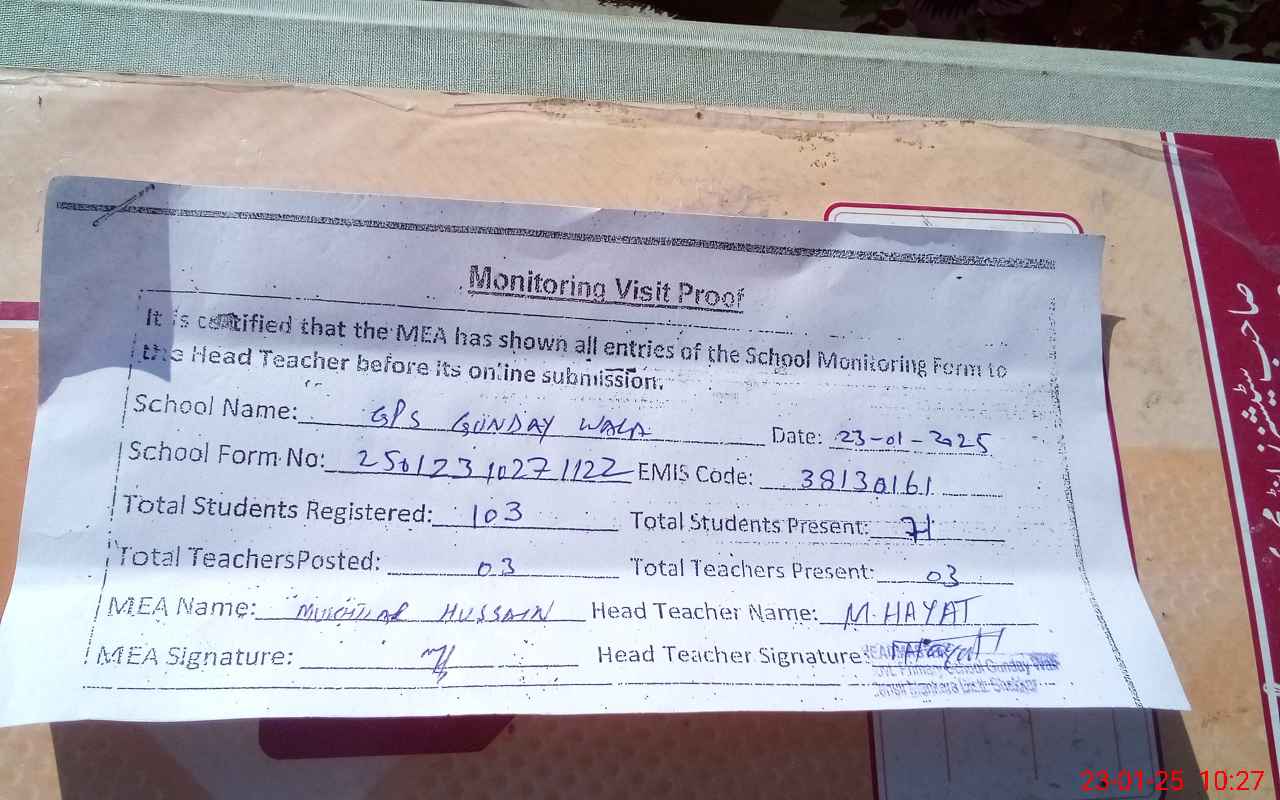 Monitoring Visit Proof
It is certified that the MEA has shown all entries of the School Monitoring Form to
the Head Teacher before its online submission.
School Name: GPS GUNDAY WALA Date: 23-01-2025
School Form No: 25012310271122 EMIS Code: 38130161
Total Students Registered: 103 Total Students Present: 71
Total TeachersPosted: 03 Total Teachers Present: 03
MEA Name: MUKHTIAR HUSSAIN Head Teacher Name: M. HAYAT
MEA Signature: Head Teacher Signature: Hayat
Primary School Gunday Wala
صاحب سٹیشنرز
23-01-25 10:27